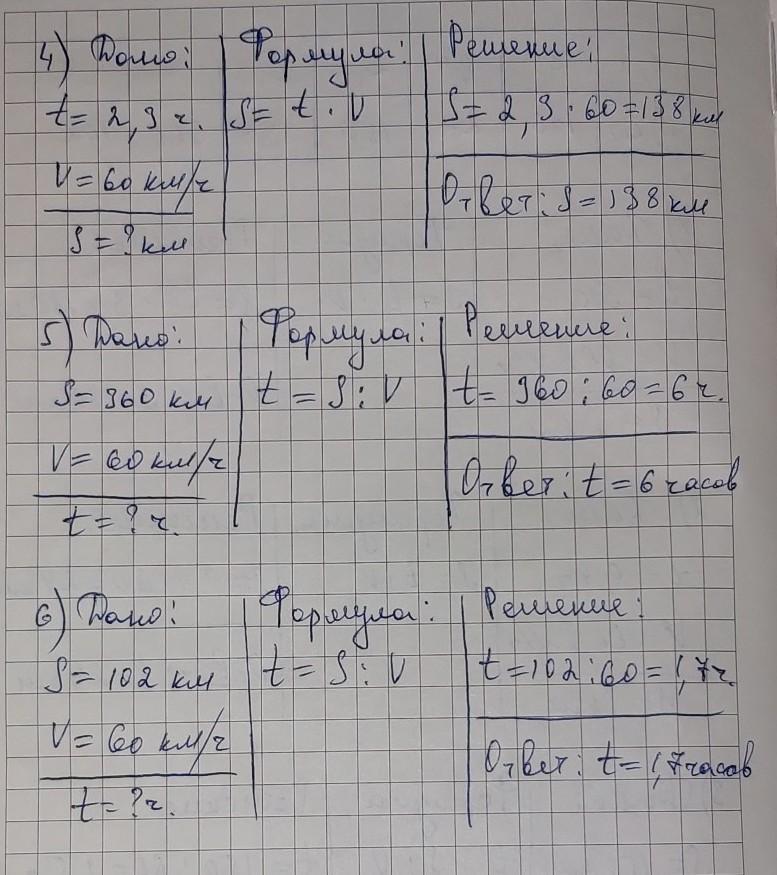 4) Дано: Формула: Решение:
t = 2,3 ч. S = t · V S = 2,3 · 60 = 138 км
V = 60 км/ч
S = ? км Ответ: S = 138 км
5) Дано: Формула: Решение:
S = 360 км t = S : V t = 360 : 60 = 6 ч.
V = 60 км/ч
t = ? ч. Ответ: t = 6 часов
6) Дано: Формула: Решение:
S = 102 км t = S : V t = 102 : 60 = 1,7 ч.
V = 60 км/ч
t = ? ч. Ответ: t = 1,7 часов